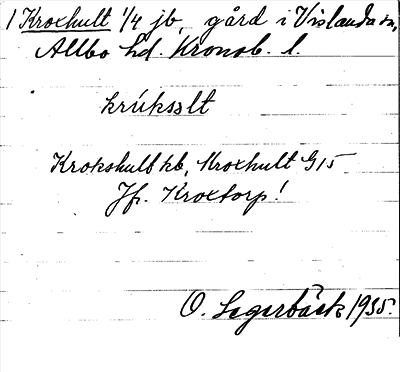 1 Kroxhult 1/4 jb, gård i Vislanda sn,
Allbo hd. Kronob. l.
krúksəlt
Krokshult kb, Kroxhult G15
Jfr. Kroxtorp!
O. Segerbäck 1935.